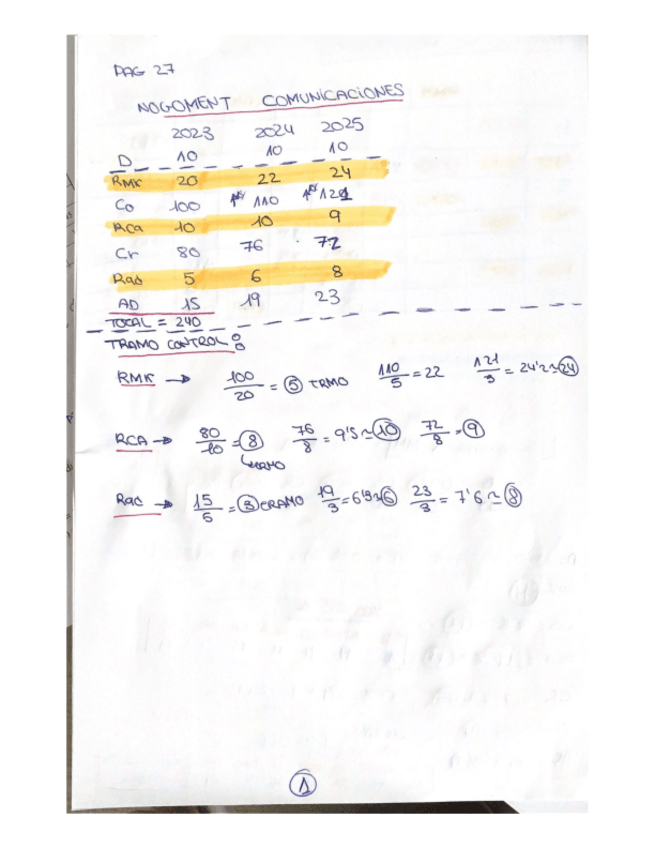 PAG 27
NOGOMENT COMUNICACIONES
2023 2024 2025
D 10 10 10
RMK 20 22 24
Co 100 110 121
Rca 10 10 9
Cr 80 76 72
Rad 5 6 8
AD 15 19 23
TOTAL = 240
TRAMO CONTROL:
RMK → 100/20 = 5 TRMO 110/5 = 22 121/3 = 24'2 ≃ 24
RCA → 80/10 = 8 76/8 = 9'5 ≃ 10 72/8 = 9
Rad → 15/5 = 3 19/3 = 6'3 ≃ 6 23/3 = 7'6 ≃ 8
1